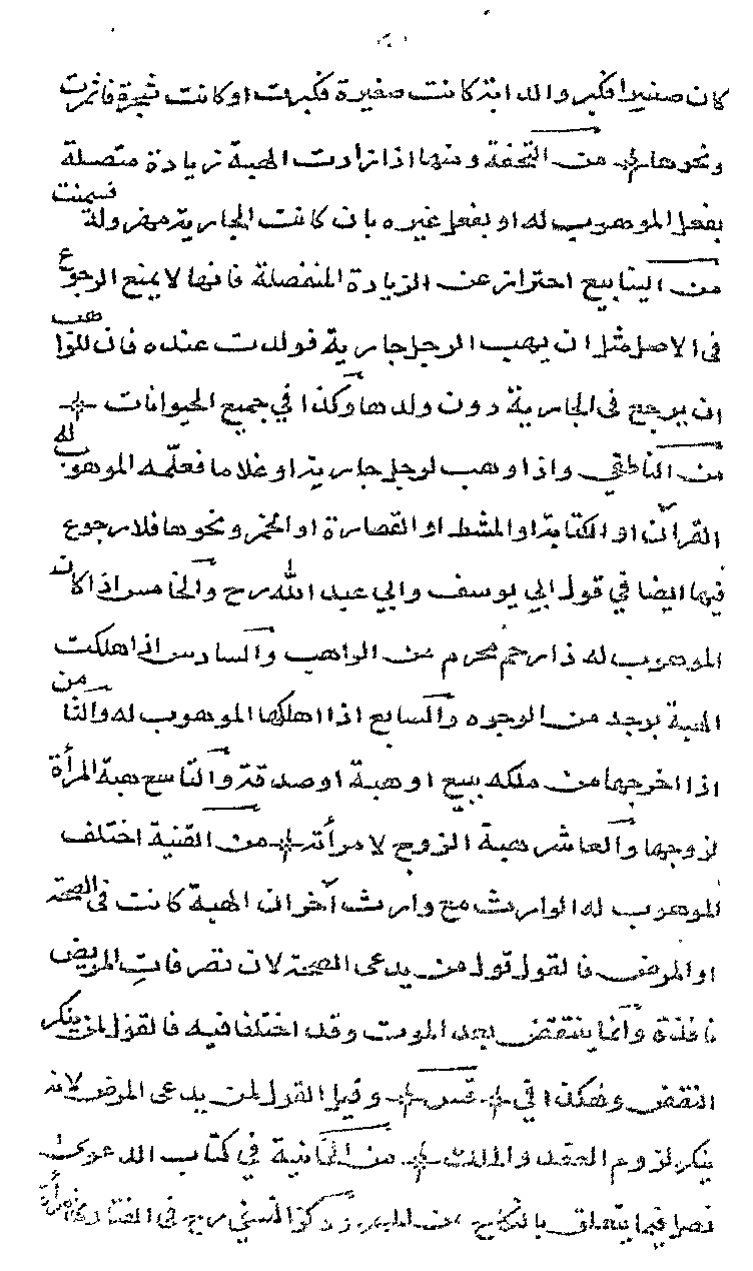 كان صغيرا فكبر والدابة كانت صغيرة فكبرت او كانت شجرة فاثمرت
ونحوها من التحفة ومنها اذا زادت الهبة زيادة متصلة
بفعل الموهوب له او بفعل غيره بان كانت الجارية مهزولة فسمنت
من الينابيع احتراز عن الزيادة المنفصلة فانها لا يمنع الرجوع
فى الاصل مثل ان يهب الرجل جارية فولدت عنده فان للواهب
ان يرجع فى الجارية دون ولدها وكذا في جميع الحيوانات
من الناطفي واذا وهب لرجل جارية او غلاما فعلّمه الموهوب له
القرآن او الكتابة او المشط او القصارة او الخبز ونحوها فلا رجوع
فيها ايضا في قول ابي يوسف وابي عبد الله رح والخامس اذا كان
الموهوب له ذا رحم محرم من الواهب والسادس اذا هلكت
الهبة بوجه من الوجوه والسابع اذا اهلكها الموهوب له والثامن
اذا اخرجها من ملكه ببيع او هبة او صدقة والتاسع هبة المرأة
لزوجها والعاشر هبة الزوج لامرأته من القنية اختلف
الموهوب له الوارث مع وارث آخر ان الهبة كانت فى الصحة
او المرض فالقول قول من يدعى الصحة لان تصرفات المريض
نافذة وانما ينتقض بعد الموت وقد اختلفا فيه فالقول لمن ينكر
النقض وهكذا في وقيل القول لمن يدعى المرض لانه
ينكر لزوم العقد والملك من الخانية في كتاب الدعوى
فصل فيما يتعلق بالنكاح وذكر النسفي رح فى